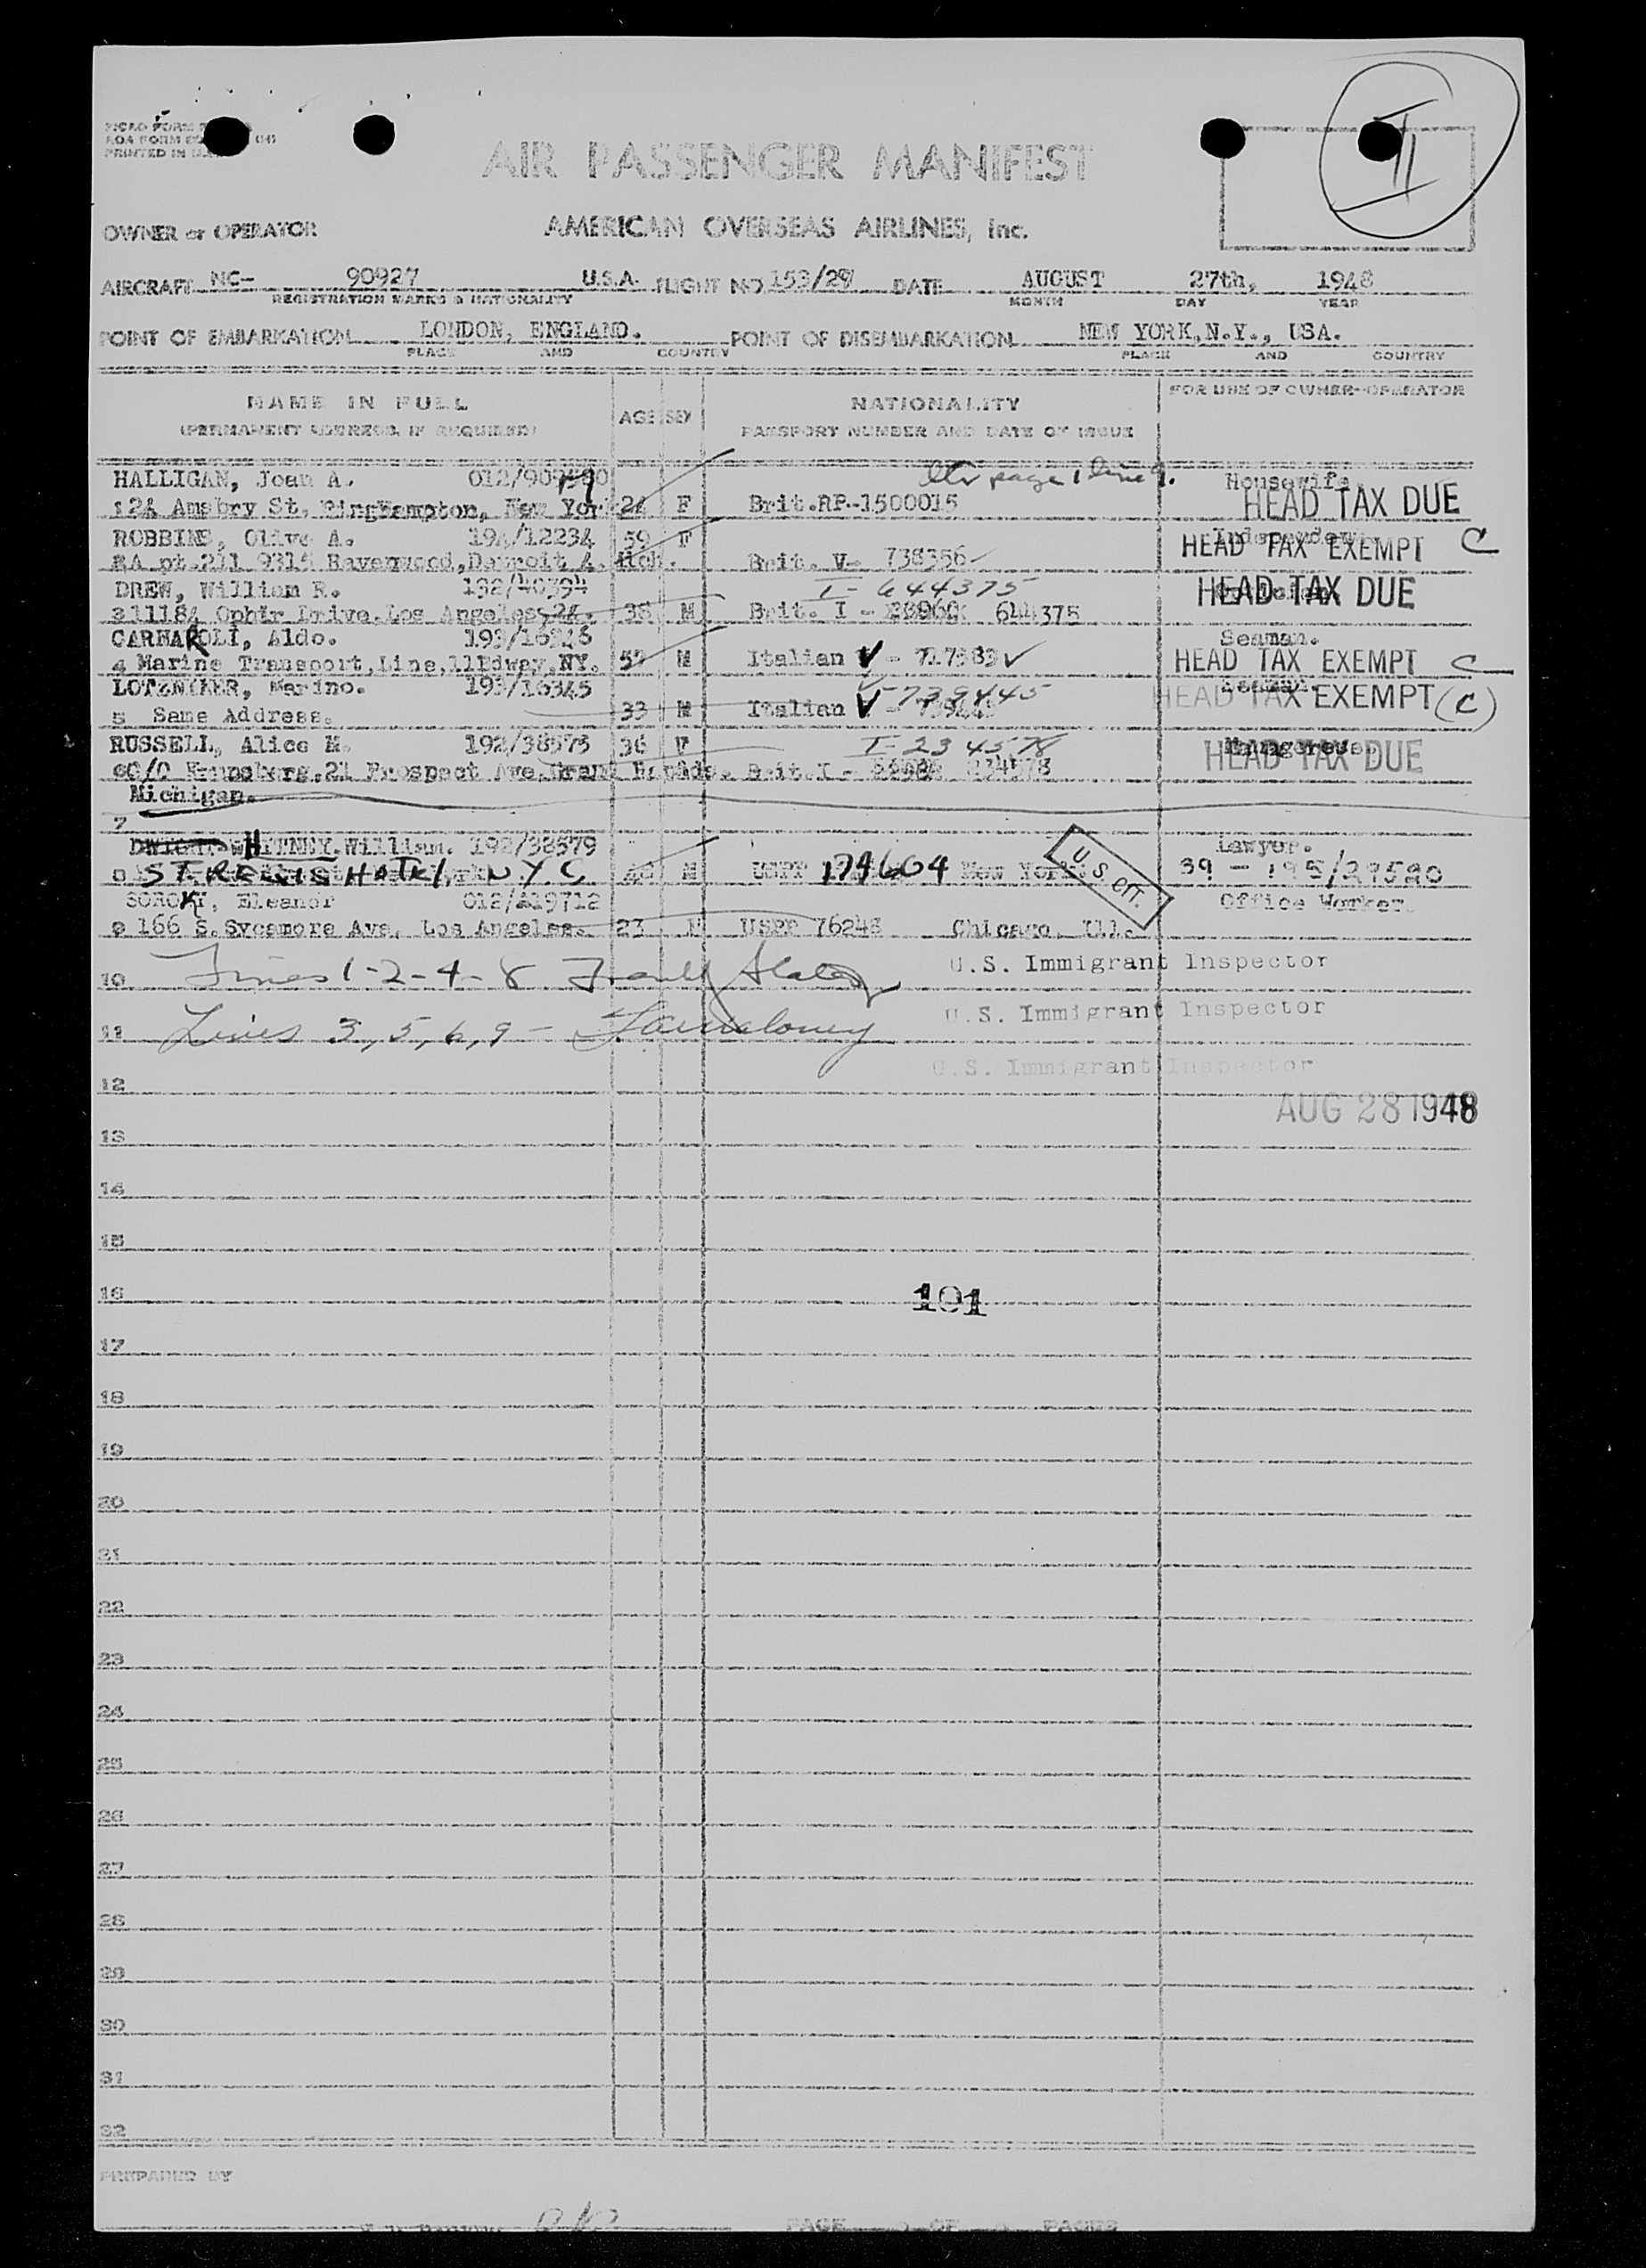 II
PRINTED IN
AIR PASSENGER MANIFEST
OWNER or OPERATOR
AMERICAN OVERSEAS AIRLINES, Inc.
AIRCRAFT NC- 90927 U.S.A. FLIGHT NO 153/27 DATE AUGUST 27th, 1948
REGISTRATION MARKS & NATIONALITY MONTH DAY YEAR
POINT OF EMBARKATION LONDON, ENGLAND. POINT OF DISEMBARKATION NEW YORK, N.Y., USA.
PLACE AND COUNTRY PLACE AND COUNTRY
NAME IN FULL AGE SEX NATIONALITY FOR USE OF OWNER-OPERATOR
(PERMANENT ADDRESS, IF REQUIRED) PASSPORT NUMBER AND DATE OF ISSUE
HALLIGAN, Joan A. page 1 line 9. Housewife.
1 24 St. Binghampton, New York 24 F Brit.RP-1500015 HEAD TAX DUE
ROBBINS, Olive A. 194/12234 59 F HEAD TAX EXEMPT C
2 A pt.211 9315 Ravenwood, Detroit 4. Mich. Brit. V- 738356
DREW, William R. 192/40394 I-644375 HEAD TAX DUE
3 11184 Ophir Drive, Los Angeles, 24. 38 M Brit. I - 644375
CARMAROLI, Aldo. Seaman.
4 Marine Transport, Line, 11Bdway, NY. M Italian V - 717383 HEAD TAX EXEMPT C
Marino. 193/16345 V-739445 HEAD TAX EXEMPT (C)
5 Same Address. 33 M Italian V
RUSSELL, Alice M. 192/38575 36 F I-234578 HEAD TAX DUE
6 C/O 21 Prospect Ave, Grand Rapids. Brit.I - 234578
Michigan.
7
WHITNEY. William. 192/38579 Lawyer.
8 ST. REGIS HOTEL, N.Y.C. M USPP 174604 New York. U.S. CIT. 39 - 195/29590
SOROKY, Eleanor 012/419712 Office Worker.
9 166 S. Sycamore Ave, Los Angeles. 23 F USPP 76248 Chicago, Ill.
U.S. Immigrant Inspector
10 Lines 1-2-4-8
U.S. Immigrant Inspector
11 Lines 3, 5, 6, 9 -
U.S. Immigrant Inspector
12
AUG 28 1948
13
14
15
16 191
17
18
19
20
21
22
23
24
25
26
27
28
29
30
31
32
PREPARED BY
PAGE OF PAGES